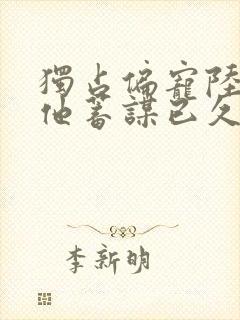 獨占偏寵陸
他蓄謀已久
李新明